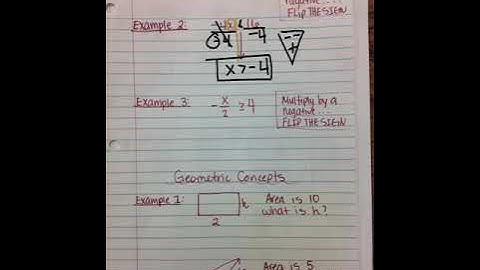 negative....
FLIP THE SIGN
Example 2:
-4 -4
x > -4
Example 3: -x/2 ≥ 4
Multiply by a
negative...
FLIP THE SIGN
Geometric Concepts
Example 1:
h
2
Area is 10
what is h?
Area is 5